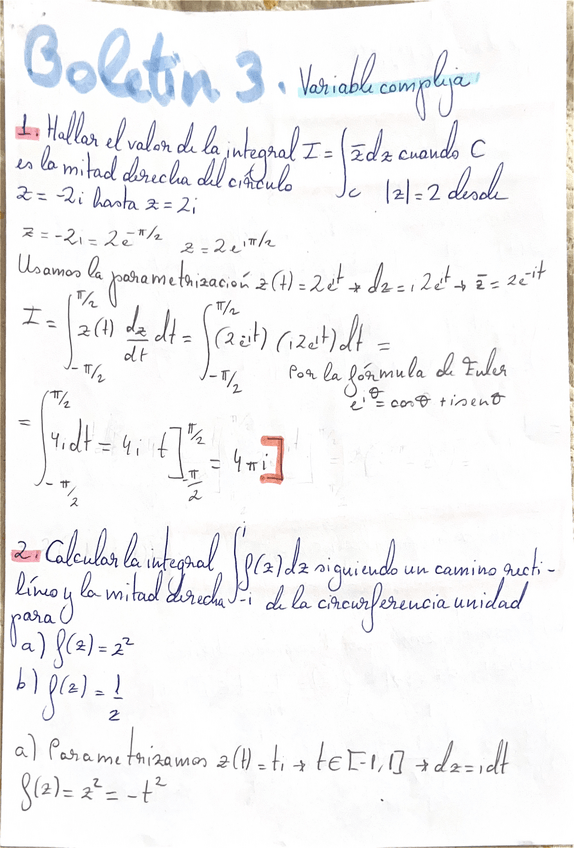 Boletín 3. Variable compleja
1. Hallar el valor de la integral I = ∫_C z̄ dz cuando C
es la mitad derecha del círculo |z| = 2 desde
z = -2i hasta z = 2i
z = -2i = 2e^{-π/2} z = 2e^{iπ/2}
Usamos la parametrización z(t) = 2e^{it} → dz = i2e^{it} → z̄ = 2e^{-it}
I = ∫_{-π/2}^{π/2} z(t) dz/dt dt = ∫_{-π/2}^{π/2} (2e^{-it}) (i2e^{it}) dt =
Por la fórmula de Euler
e^{iθ} = cosθ + isenθ
= ∫_{-π/2}^{π/2} 4i dt = 4i t]_{-π/2}^{π/2} = 4πi]
2. Calcular la integral ∫_{-i}^{i} f(z) dz siguiendo un camino recti-
líneo y la mitad derecha de la circunferencia unidad
para
a) f(z) = z²
b) f(z) = 1/z
a) Parametrizamos z(t) = ti → t ∈ [-1,1] → dz = idt
f(z) = z² = -t²